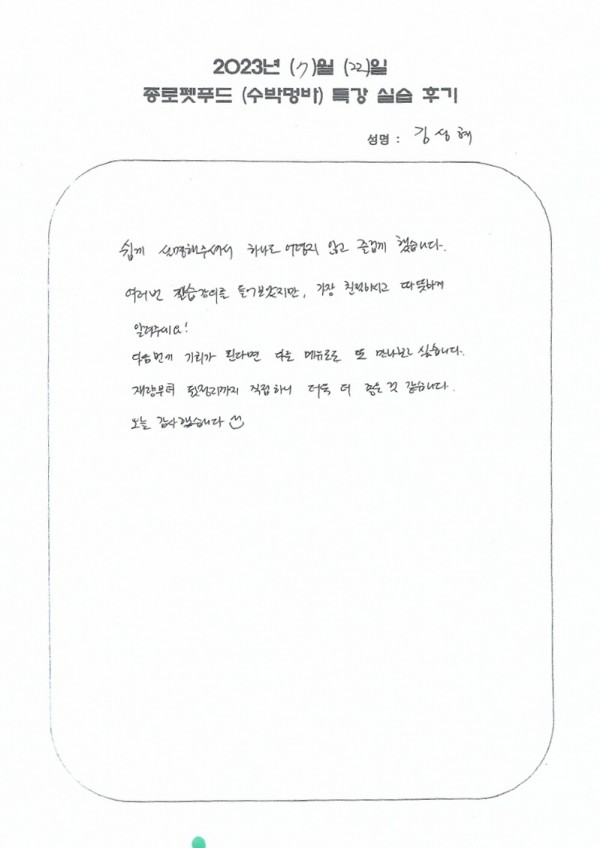 2023년 (7)월 (22)일
종로펫푸드 (수박멍바) 특강 실습 후기
성명 : 김성혜
쉽게 설명해주셔서 하나도 어렵지 않고 즐겁게 했습니다.
여러번 실습강의를 들어보았지만, 가장 친절하시고 따뜻하게
알려주세요!
다음번에 기회가 된다면 다른 메뉴로도 또 만나보고 싶습니다.
재량부터 뒷정리까지 직접하니 더욱 더 좋은 것 같습니다.
오늘 감사했습니다